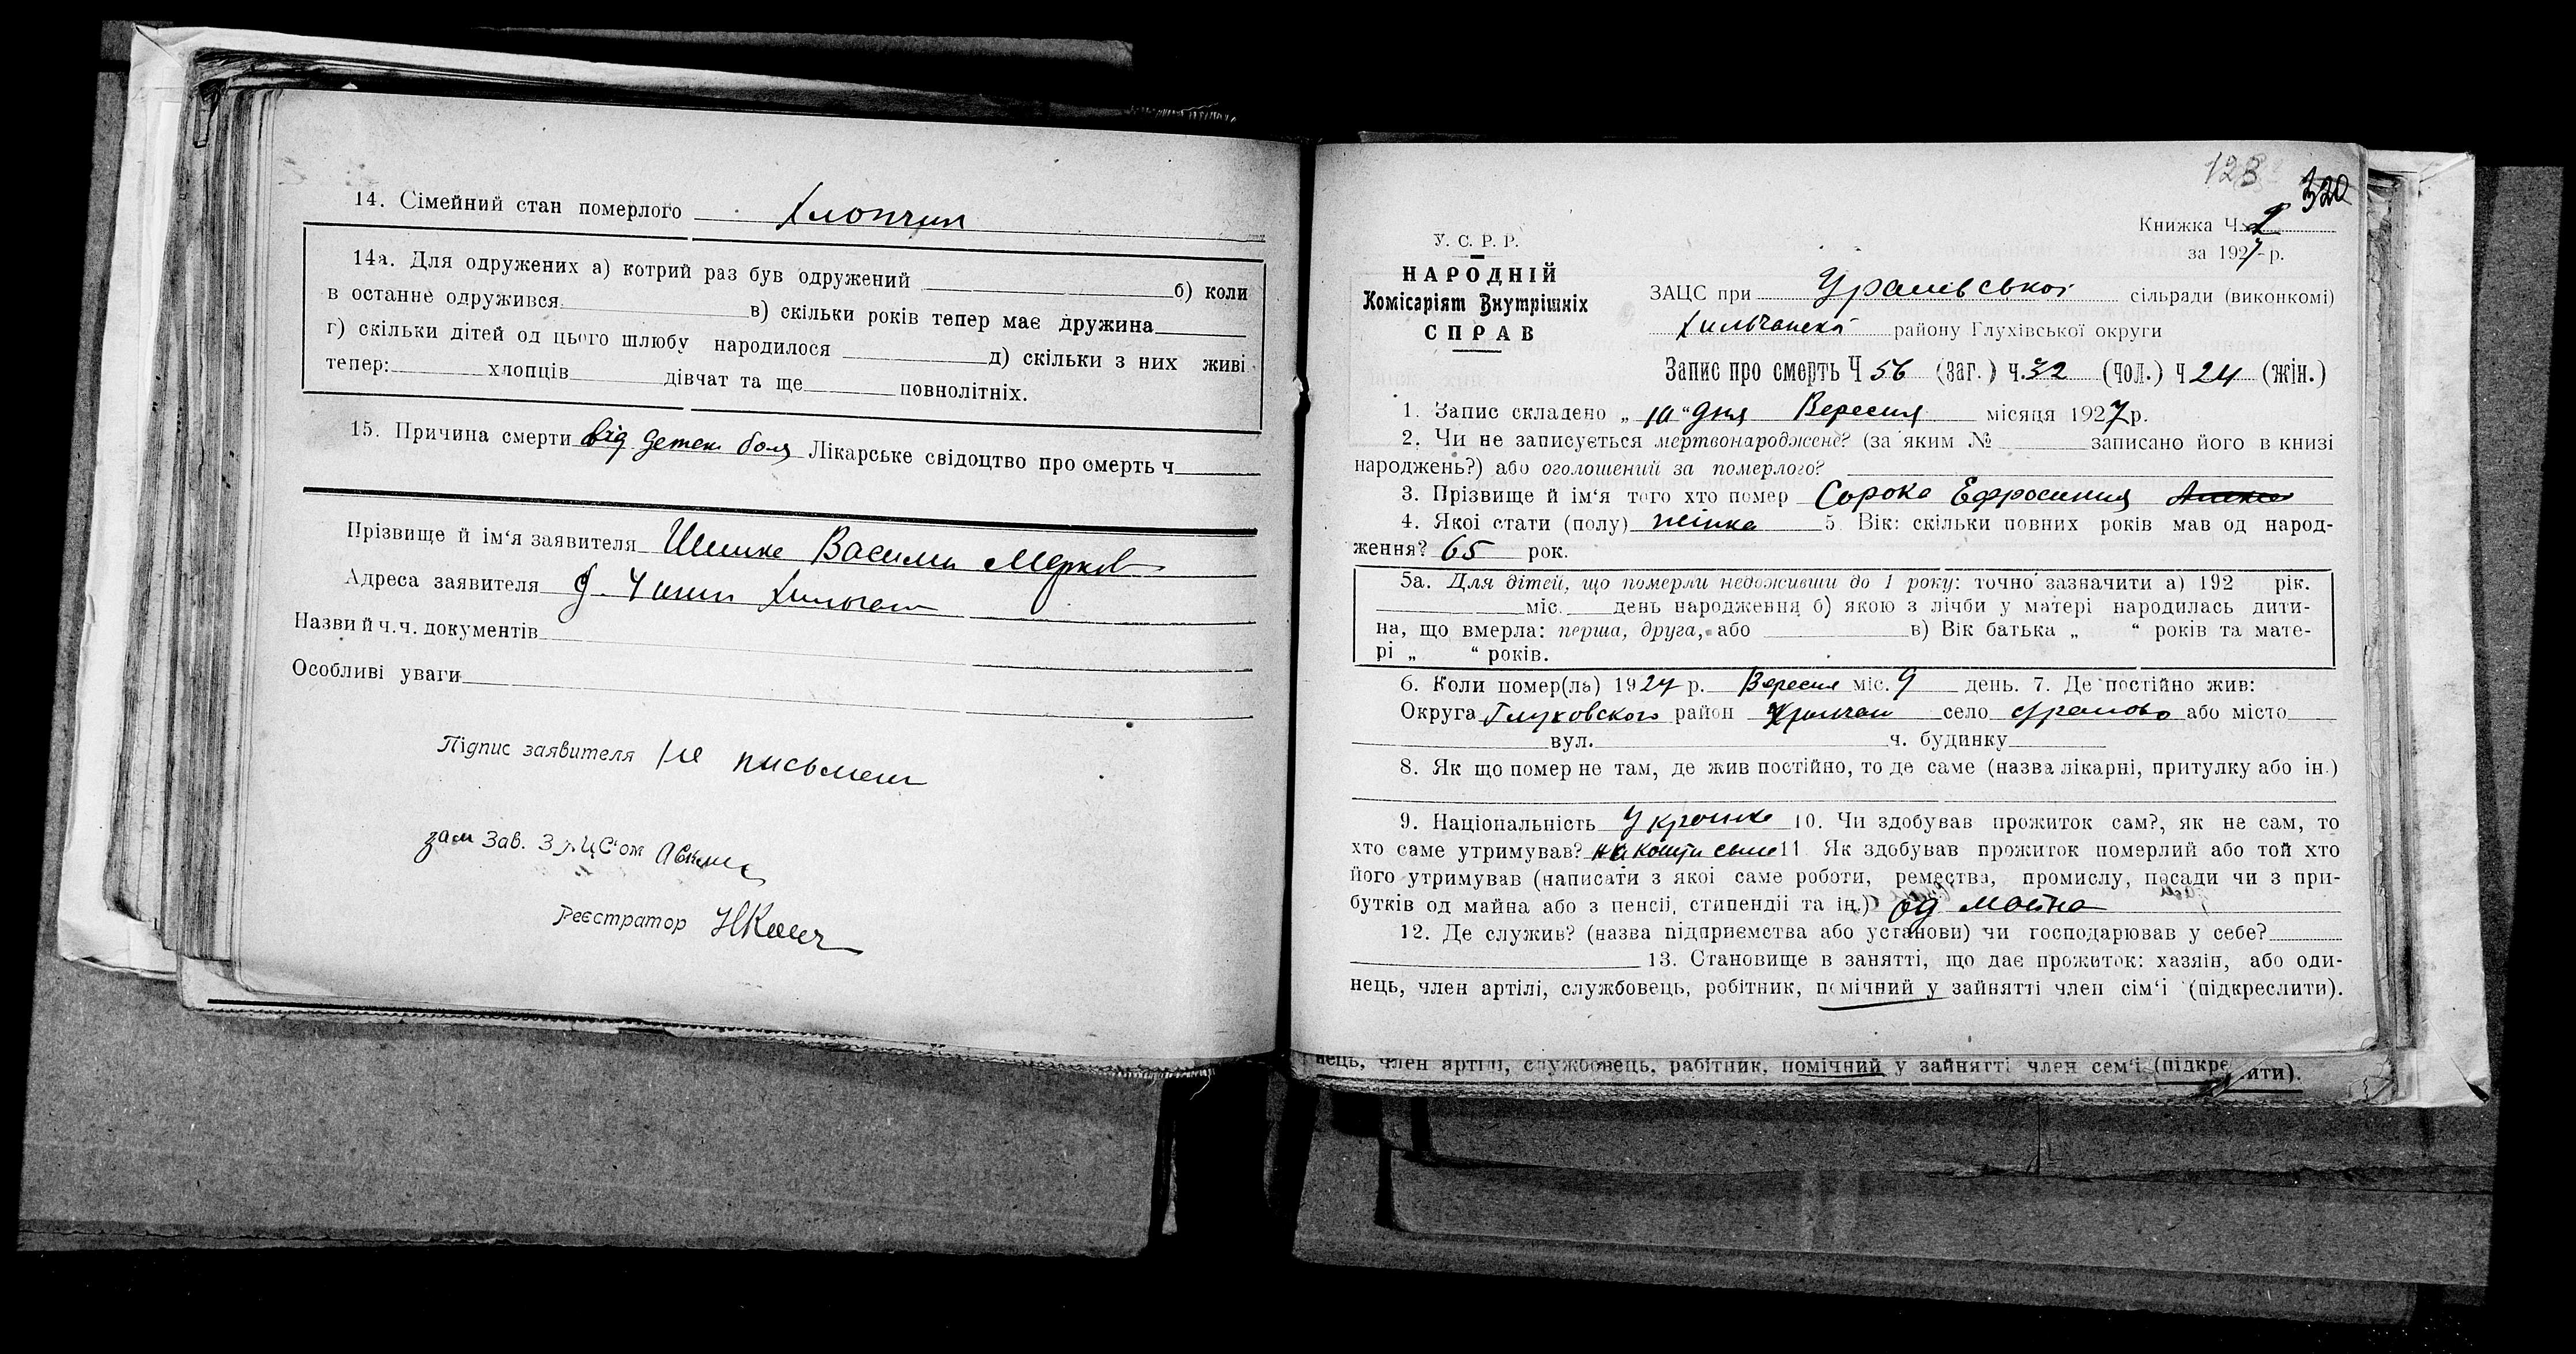 14. Сімейний стан померлого Хлопчик
14а. Для одружених а) котрий раз був одружений б) коли
в останнє одружився в) скільки років тепер має дружина
г) скільки дітей од цього шлюбу народилося д) скільки з них живі
тепер: хлопців дівчат та ще повнолітніх.
15. Причина смерти від детск боля Лікарське свідоцтво про смерть ч
Прізвище й ім‘я заявителя Шишка Василь Марков
Адреса заявителя
Назви й ч.ч. документів
Особливі уваги
Підпис заявителя не письмен
зам Зав. ЗАЦС‘ом
Реєстратор
123
320
Книжка Ч. 2
за 1927 р.
У. С. Р. Р.
НАРОДНІЙ
Комісаріят Внутрішніх
СПРАВ
ЗАЦС при сільради (виконкомі)
району Глухівської округи
Запис про смерть Ч 56 (заг.) ч. 32 (чол.) ч 24 (жін.)
1. Запис складено „10“ дня Вересня місяця 1927 р.
2. Чи не записується мертвонароджене? (за яким № записано його в книзі
народжень?) або оголошений за померлого?
3. Прізвище й ім‘я того хто помер Сорока Ефросиния
4. Якоі стати (полу) жінка 5. Вік: скільки повних років мав од народ-
ження? 65 рок.
5а. Для дітей, що померли недоживши до 1 року: точно зазначити а) 192 рік.
міс. день народження б) якою з лічби у матері народилась дити-
на, що вмерла: перша, друга, або в) Вік батька „ “ років та мате-
рі „ “ років.
6. Коли помер(ла) 1927 р. Вересня міс. 9 день. 7. Де постійно жив:
Округа Глуховского район село або місто
вул. ч. будинку
8. Як що помер не там, де жив постійно, то де саме (назва лікарні, притулку або ін.)
9. Національність Украинка 10. Чи здобував прожиток сам?, як не сам, то
хто саме утримував? на кошти сына 11 Як здобував прожиток померлий або той хто
його утримував (написати з якоі саме роботи, ремества, промислу, посади чи з при-
бутків од майна або з пенсіі, стипендіі та ін.) од майна
12. Де служив? (назва підприємства або установи) чи господарював у себе?
13. Становище в занятті, що дає прожиток: хазяін, або оди-
нець, член артілі, службовець, робітник, помічний у зайнятті член сім‘і (підкреслити).
нець, член артілі, службовець, рабітник, помічний у зайнятті член сем‘і (підкре ити).